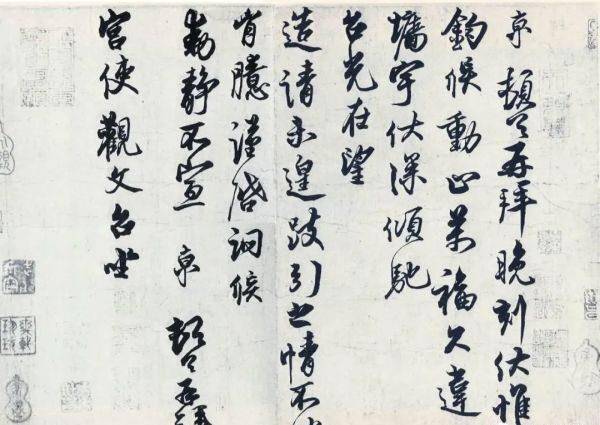 京 頓首再拜晚刻伏惟
鈞候動止萬福久違
墻宇伏深傾馳
台光在望
造請未遑跂引之情不
胸臆謹啓詞候
動靜不宣 京 頓首再拜
宮使觀文台坐